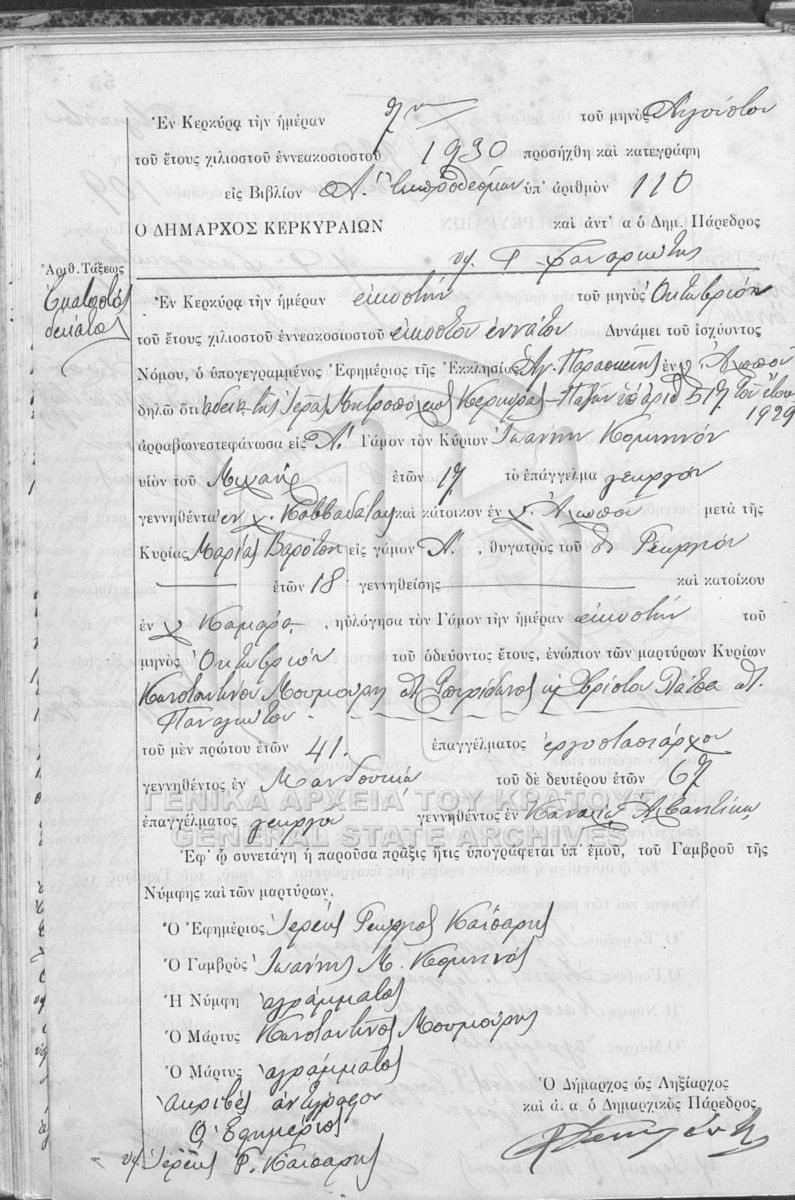 Ἐν Κερκύρᾳ τὴν ἡμέραν 7ην τοῦ μηνὸς Αὐγούστου
τοῦ ἔτους χιλιοστοῦ ἐννεακοσιοστοῦ 1930 προσήχθη καὶ κατεγράφη
εἰς Βιβλίον Α. Ἐκπροθέσμων ὑπ' ἀριθμὸν 110
Ο ΔΗΜΑΡΧΟΣ ΚΕΡΚΥΡΑΙΩΝ καὶ ἀντ' α ὁ Δημ. Πάρεδρος
υγ. Γ. Φαναριώτης
Ἀριθ. Τάξεως
Ἑκατοστὸς
δέκατος
Ἐν Κερκύρᾳ τὴν ἡμέραν εἰκοστὴν τοῦ μηνὸς Ὀκτωβρίου
τοῦ ἔτους χιλιοστοῦ ἐννεακοσιοστοῦ εἰκοστοῦ ἐννάτου Δυνάμει τοῦ ἰσχύοντος
Νόμου, ὁ ὑπογεγραμμένος Ἐφημέριος τῆς Ἐκκλησίας Ἁγ. Παρασκευῆς ἐν χ. Ἀλεποῦ
δηλῶ ὅτι ἀδείᾳ τῆς Ἱερᾶς Μητροπόλεως Κερκύρας-Παξῶν ὑπ' ἀριθ 517 τοῦ ἔτους 1929
ἀρραβωνεστεφάνωσα εἰς Α' Γάμον τὸν Κύριον Ἰωάννην Κομηνὸν
υἱὸν τοῦ Μιχαὴλ ἐτῶν 17 τὸ ἐπάγγελμα γεωργὸν
γεννηθέντα ἐν χ. Καββαδάτου καὶ κάτοικον ἐν χ. Ἀλεποῦ μετὰ τῆς
Κυρίας Μαρίας Βαρότση εἰς γάμον Α', θυγατρὸς τοῦ Γεωργίου
ἐτῶν 18 γεννηθείσης καὶ κατοίκου
ἐν χ Καμάρα, ηὐλόγησα τὸν Γάμον τὴν ἡμέραν εἰκοστὴν τοῦ
μηνὸς Ὀκτωβρίου τοῦ ὁδεύοντος ἔτους, ἐνώπιον τῶν μαρτύρων Κυρίων
Κωνσταντίνου Μουμούρη Σπυρίδωνος κ Χρίστου Πάτσα
Παναγιώτου.
τοῦ μὲν πρώτου ἐτῶν 41. ἐπαγγέλματος ἐργοστασιάρχου
γεννηθέντος ἐν Μανδουκίῳ τοῦ δὲ δευτέρου ἐτῶν 67
ΓΕΝΙΚΑ ΑΡΧΕΙΑ ΤΟΥ ΚΡΑΤΟΥΣ
ἐπαγγέλματος γεωργοῦ γεννηθέντος ἐν
GENERAL STATE ARCHIVES
Ἐφ' ᾧ συνετάγη ἡ παροῦσα πρᾶξις ἥτις ὑπογράφεται ὑπ' ἐμοῦ, τοῦ Γαμβροῦ τῆς
Νύμφης καὶ τῶν μαρτύρων.
Ὁ Ἐφημέριος Ἱερεὺς Γεώργιος Καίσαρης
Ὁ Γαμβρὸς Ἰωάννης Μ. Κομηνὸς
Ἡ Νύμφη ἀγράμματος
Ὁ Μάρτυς Κωνσταντῖνος Μουμούρης
Ὁ Μάρτυς ἀγράμματος
Ἀκριβὲς ἀντίγραφον
Ὁ Ἐφημέριος
υγ. Ἱερεὺς Γ. Καίσαρης
Ὁ Δήμαρχος ὡς Ληξίαρχος
καὶ ἀ. α. ὁ Δημαρχικὸς Πάρεδρος